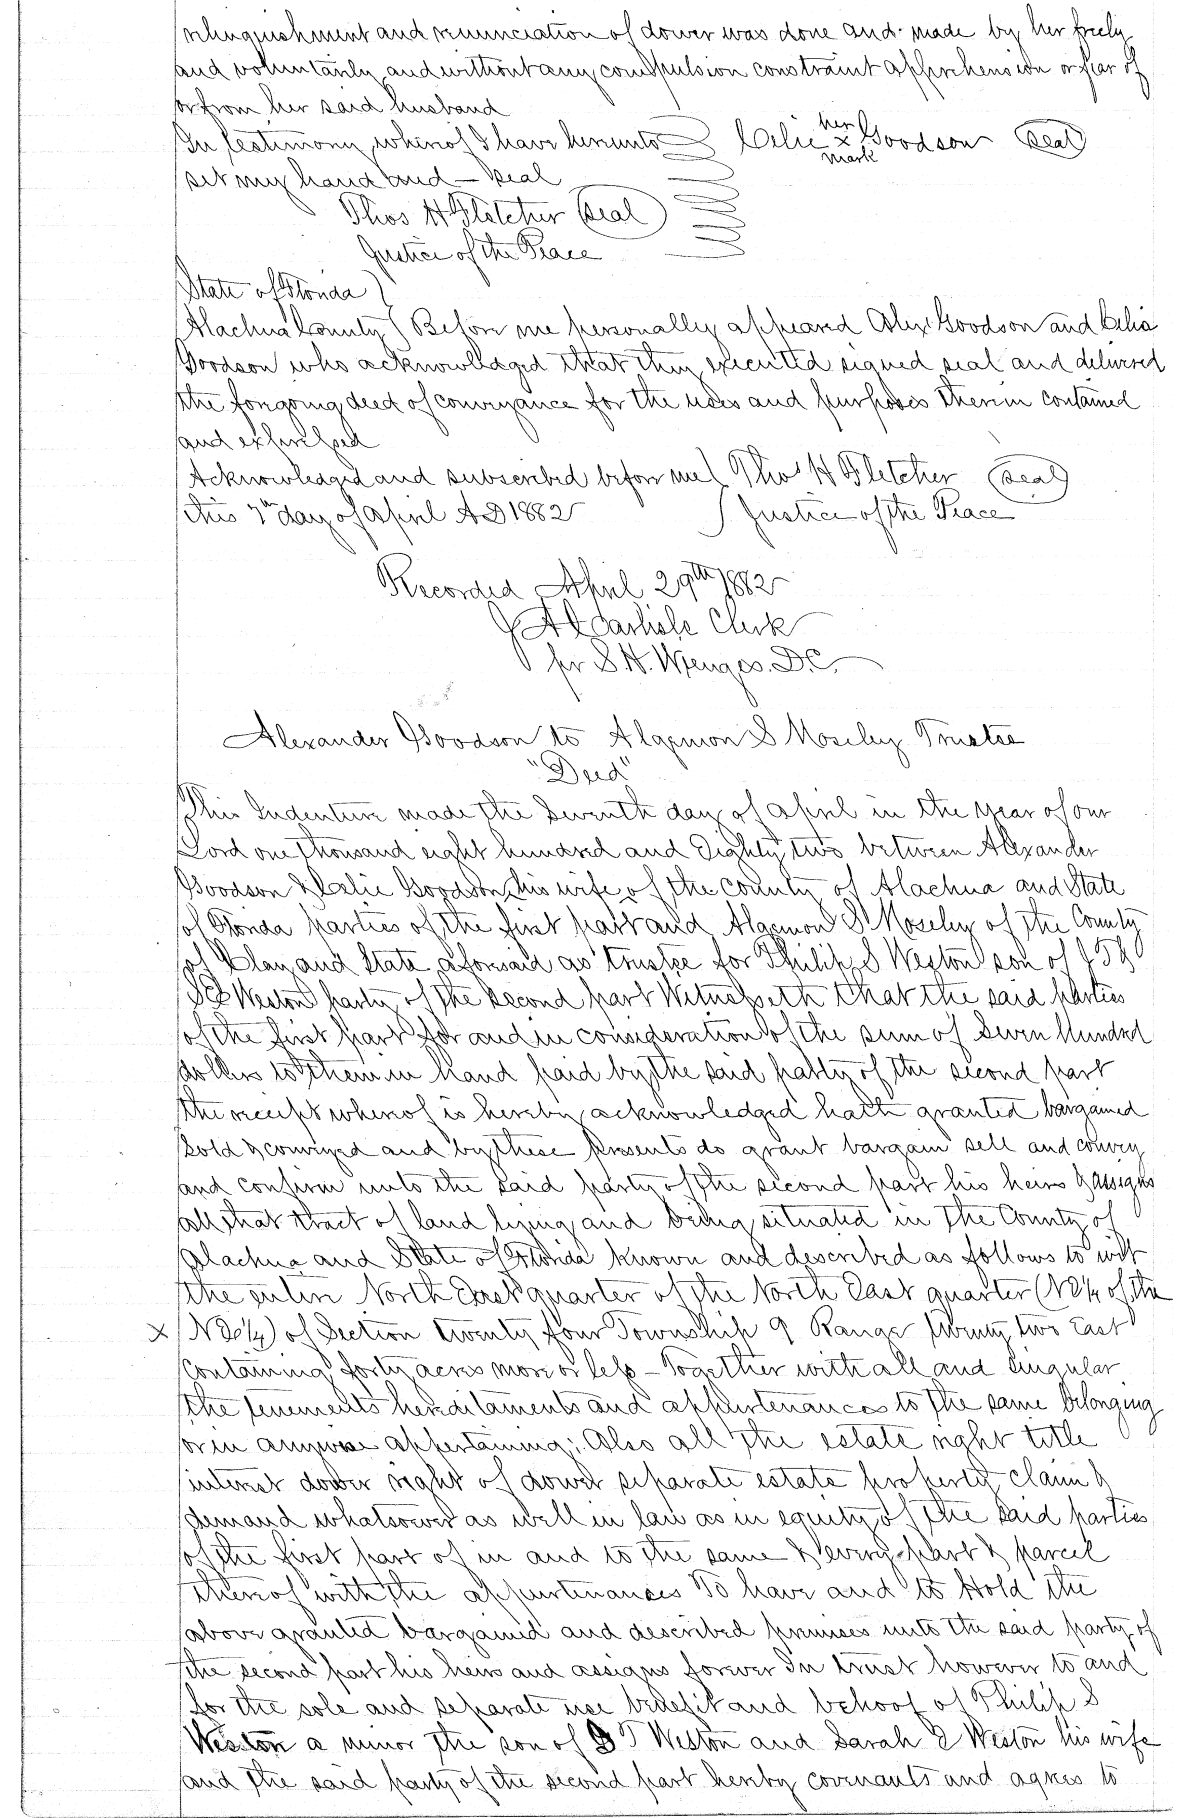 relinquishment and renunciation of dower was done and made by her freely
and voluntarily and without any compulsion constraint apprehension or fear of
or from her said husband
In testimony whereof I have hereunto Celie her x mark Goodson (seal)
set my hand and — seal
Thos H Fletcher (seal)
Justice of the Peace
State of Florida
Alachua County Before me personally appeared Alex Goodson and Celia
Goodson who acknowledged that they executed signed seal and delivered
the foregoing deed of conveyance for the uses and purposes therein contained
and expressed
Acknowledged and subscribed before me Thos H Fletcher (seal)
this 7th day of April AD 1882 Justice of the Peace
Recorded April 29th 1882
J A Carlisle Clerk
pr S. H. D.C.
Alexander Goodson to Algernon S Moseley Trustee
"Deed"
This Indenture made the Seventh day of April in the year of our
Lord one thousand eight hundred and Eighty two between Alexander
Goodson & Celie Goodson his wife of the County of Alachua and State
of Florida parties of the first part and Algernon S Moseley of the County
of Clay and State aforesaid as trustee for Philip S Weston son of &
S E Weston party of the second part Witnesseth that the said parties
of the first part for and in consideration of the sum of Seven Hundred
dollars to them in hand paid by the said party of the second part
the receipt whereof is hereby acknowledged hath granted bargained
sold & conveyed and by these presents do grant bargain sell and convey
and confirm unto the said party of the second part his heirs & assigns
all that tract of land lying and being situated in The County of
Alachua and State of Florida known and described as follows to wit
the entire North East quarter of the North East quarter (NE¼ of the
x NE¼) of Section twenty four Township 9 Range twenty two East
Containing forty acres more or less — Together with all and singular
the tenements hereditaments and appurtenances to the same belonging
or in anywise appertaining; Also all the estate right title
interest dower right of dower separate estate property claim &
demand whatsoever as well in law as in equity of the said parties
of the first part of in and to the same & every part & parcel
thereof with the appurtenances To have and to Hold the
above granted bargained and described premises unto the said party of
the second part his heirs and assigns forever In trust however to and
for the sole and separate use benefit and behoof of Philip S
Weston a minor the son of T Weston and Sarah E Weston his wife
and the said party of the second part hereby covenants and agrees to